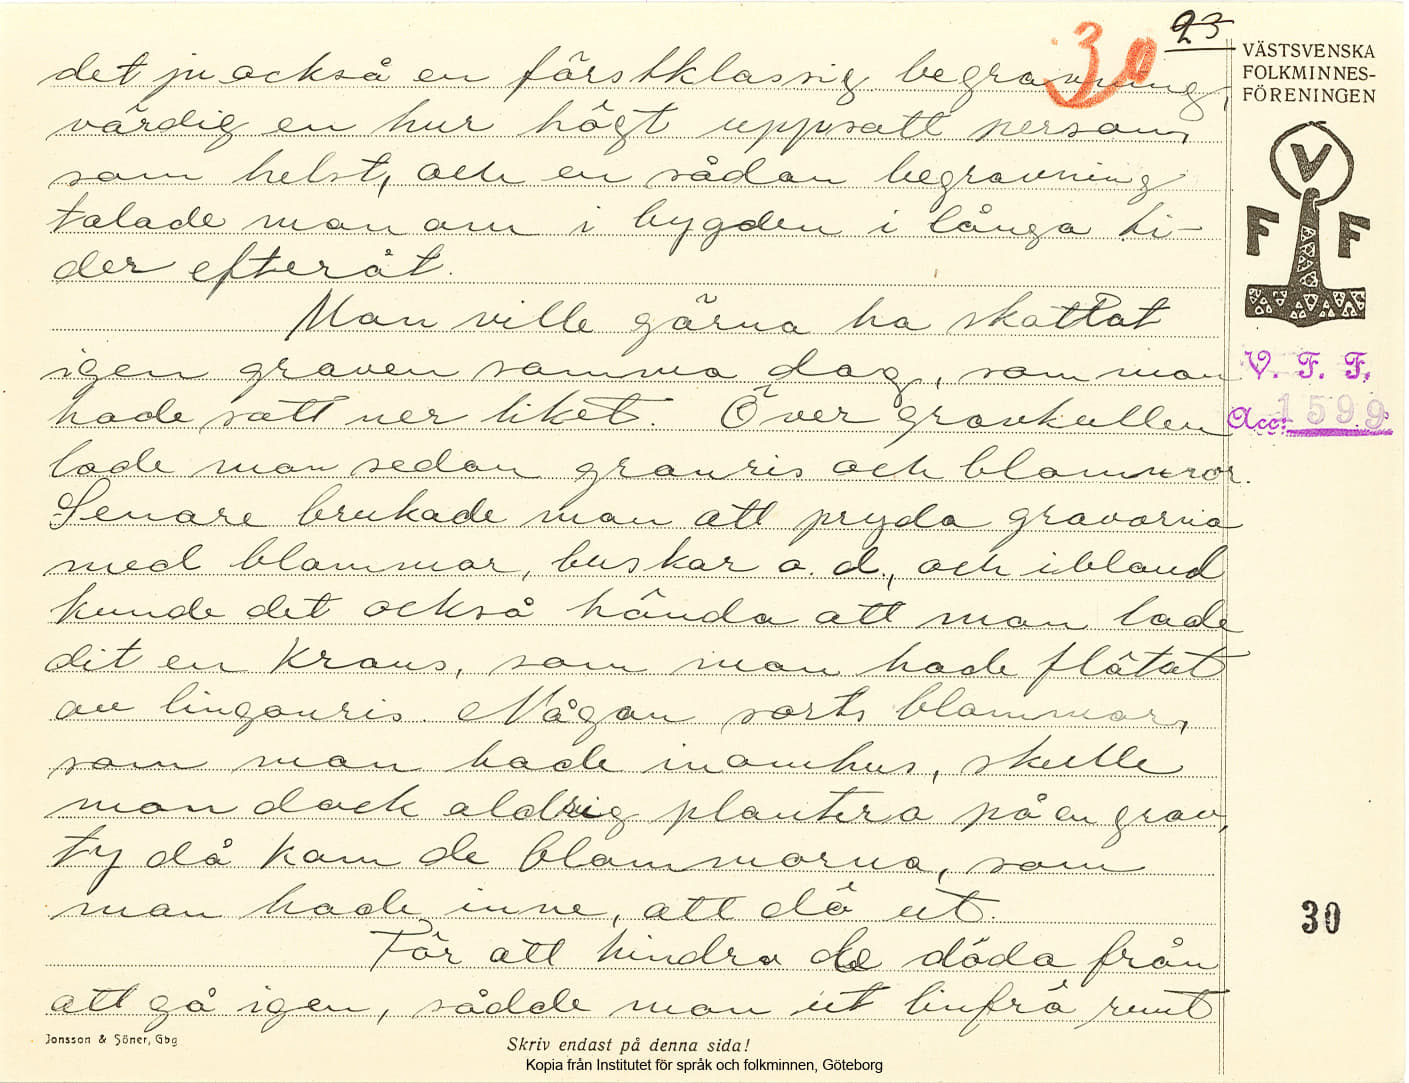 23
30
VÄSTSVENSKA
FOLKMINNES-
FÖRENINGEN
V
F F
V. F. F.
Acc: 1599
det ju också en förstklassig begravning,
värdig en hur högt uppsatt person,
som helst, och en sådan begravning
talade man om i bygden i långa ti-
der efteråt.
Man ville gärna ha skottat
igen graven samma dag, som man
hade satt ner liket. Över gravkullen
lade man sedan granris och blommor.
Senare brukade man att pryda gravarna
med blommor, buskar o. d., och ibland
kunde det också hända att man lade
dit en krans, som man hade flätat
av lingonris. Någon sorts blommor,
som man hade inomhus, skulle
man dock aldrig plantera på en grav,
ty då kom de blommorna, som
man hade inne, att dö ut.
För att hindra de döda från
att gå igen, sådde man ut linfrö runt
30
Jonsson & Söner, Gbg
Skriv endast på denna sida!
Kopia från Institutet för språk och folkminnen, Göteborg